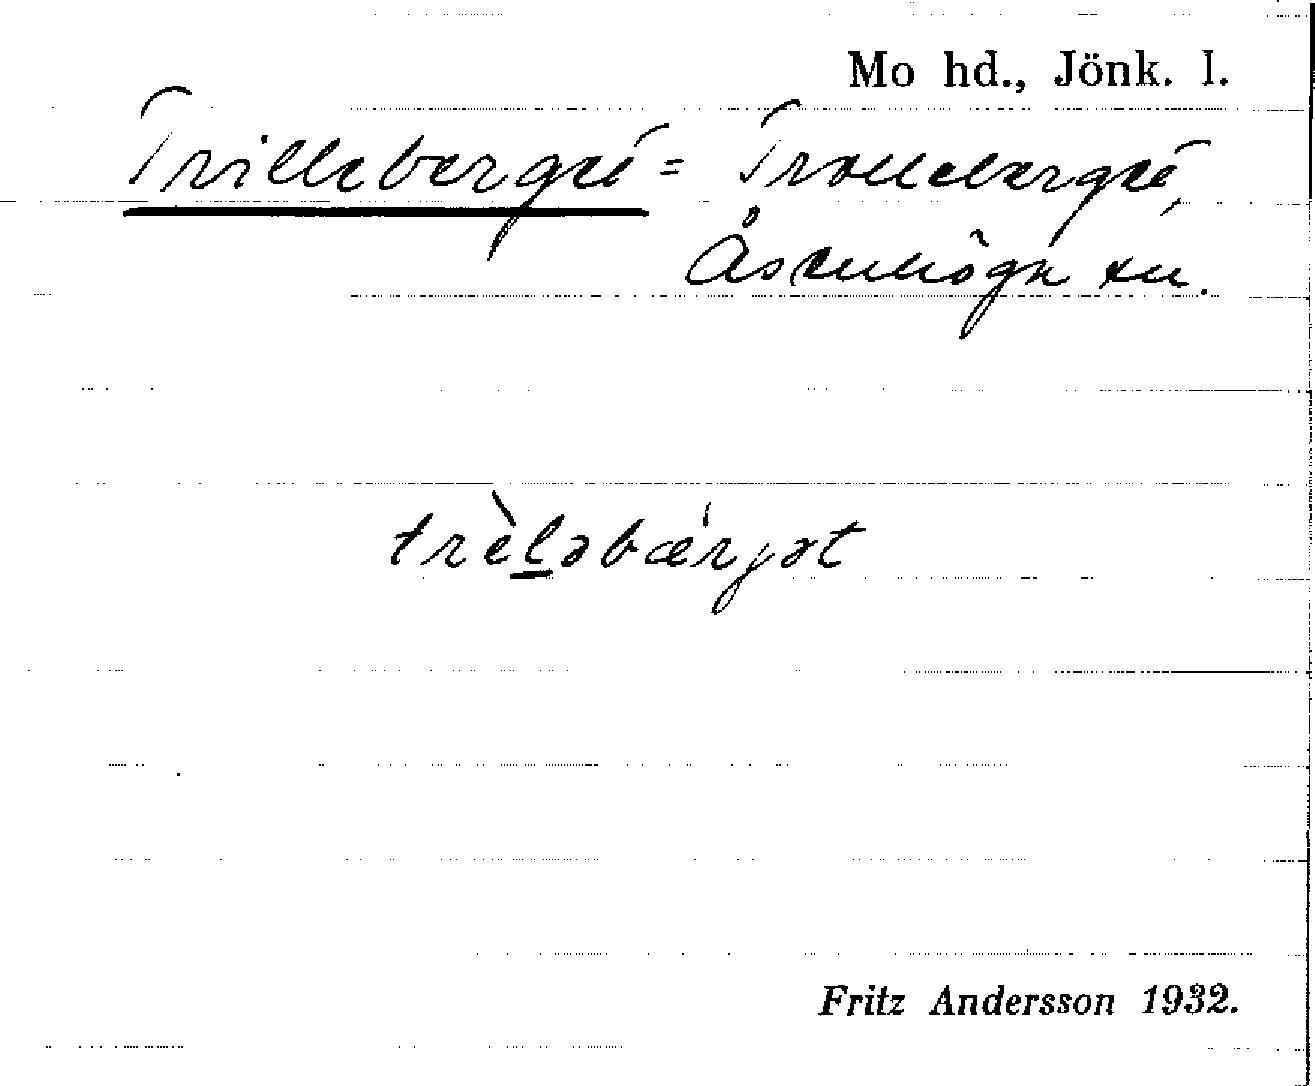 Mo hd., Jönk. l.
Trilleberget = Trolleberget,
Åsenhöga sn.
trèl̲əbærjət
Fritz Andersson 1932.